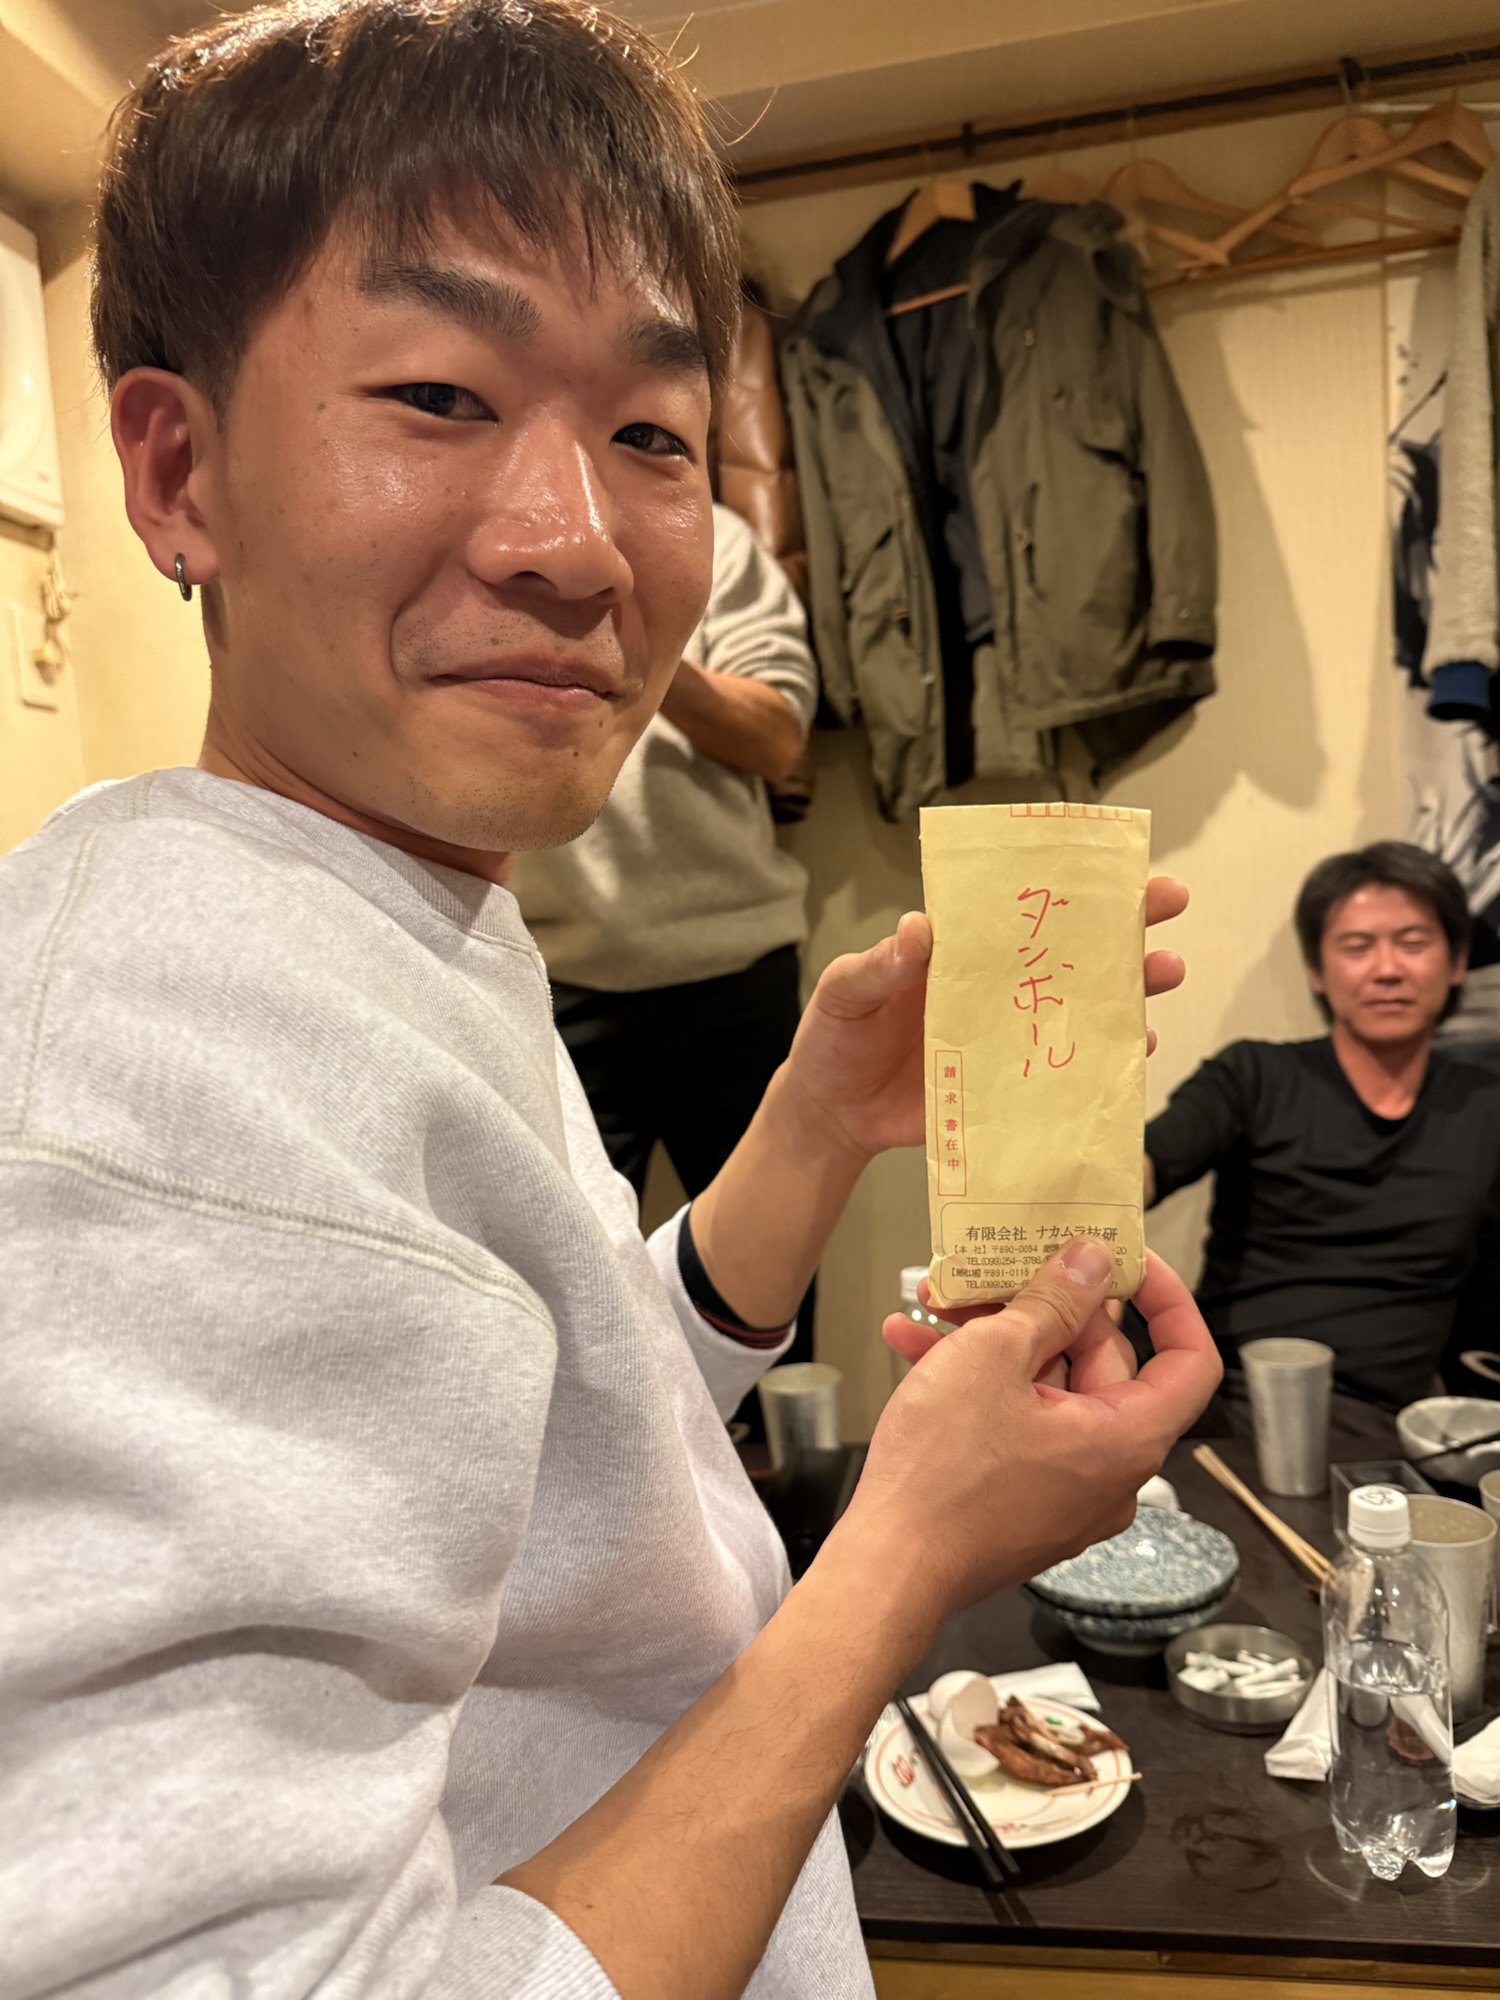 ダンボール
請求書在中
有限会社 ナカムラ技研
【本 社】〒890-0054
TEL(099)254-3786
〒891-0115
TEL(099)260-